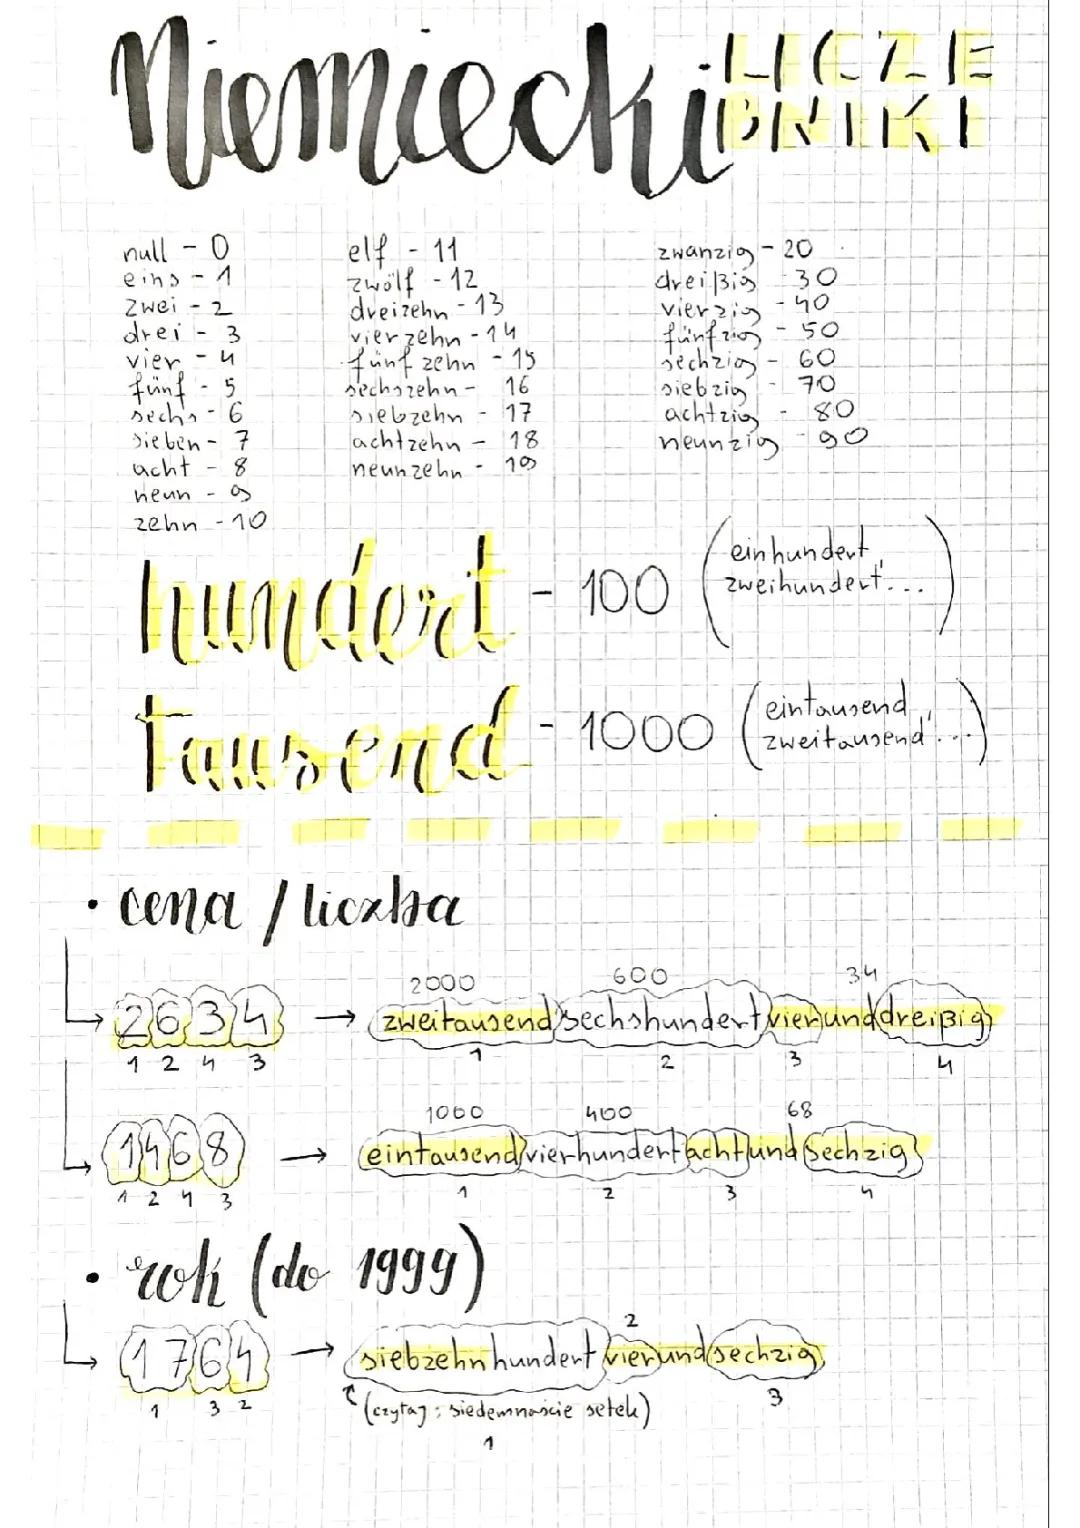 Niemiecki LICZE
BNIKI
null - 0
eins - 1
zwei - 2
drei - 3
vier - 4
fünf - 5
sechs - 6
sieben - 7
acht - 8
neun - 9
zehn - 10
elf - 11
zwölf - 12
dreizehn - 13
vierzehn - 14
fünfzehn - 15
sechszehn - 16
siebzehn - 17
achtzehn - 18
neunzehn - 19
zwanzig - 20
dreißig - 30
vierzig - 40
fünfzig - 50
sechzig - 60
siebzig - 70
achtzig - 80
neunzig - 90
hundert - 100 (einhundert,
zweihundert...)
tausend - 1000 (eintausend,
zweitausend...)
• cena / liczba
2000 600 34
2634 → zweitausendsechshundertvierunddreißig
1 2 4 3 1 2 3 4
1000 400 68
1468 → eintausendvierhundertachtundsechzig
1 2 4 3 1 2 3 4
• rok (do 1999)
2
1764 → siebzehnhundertvierundsechzig
1 3 2 (czytaj: siedemnaście setek) 3
1